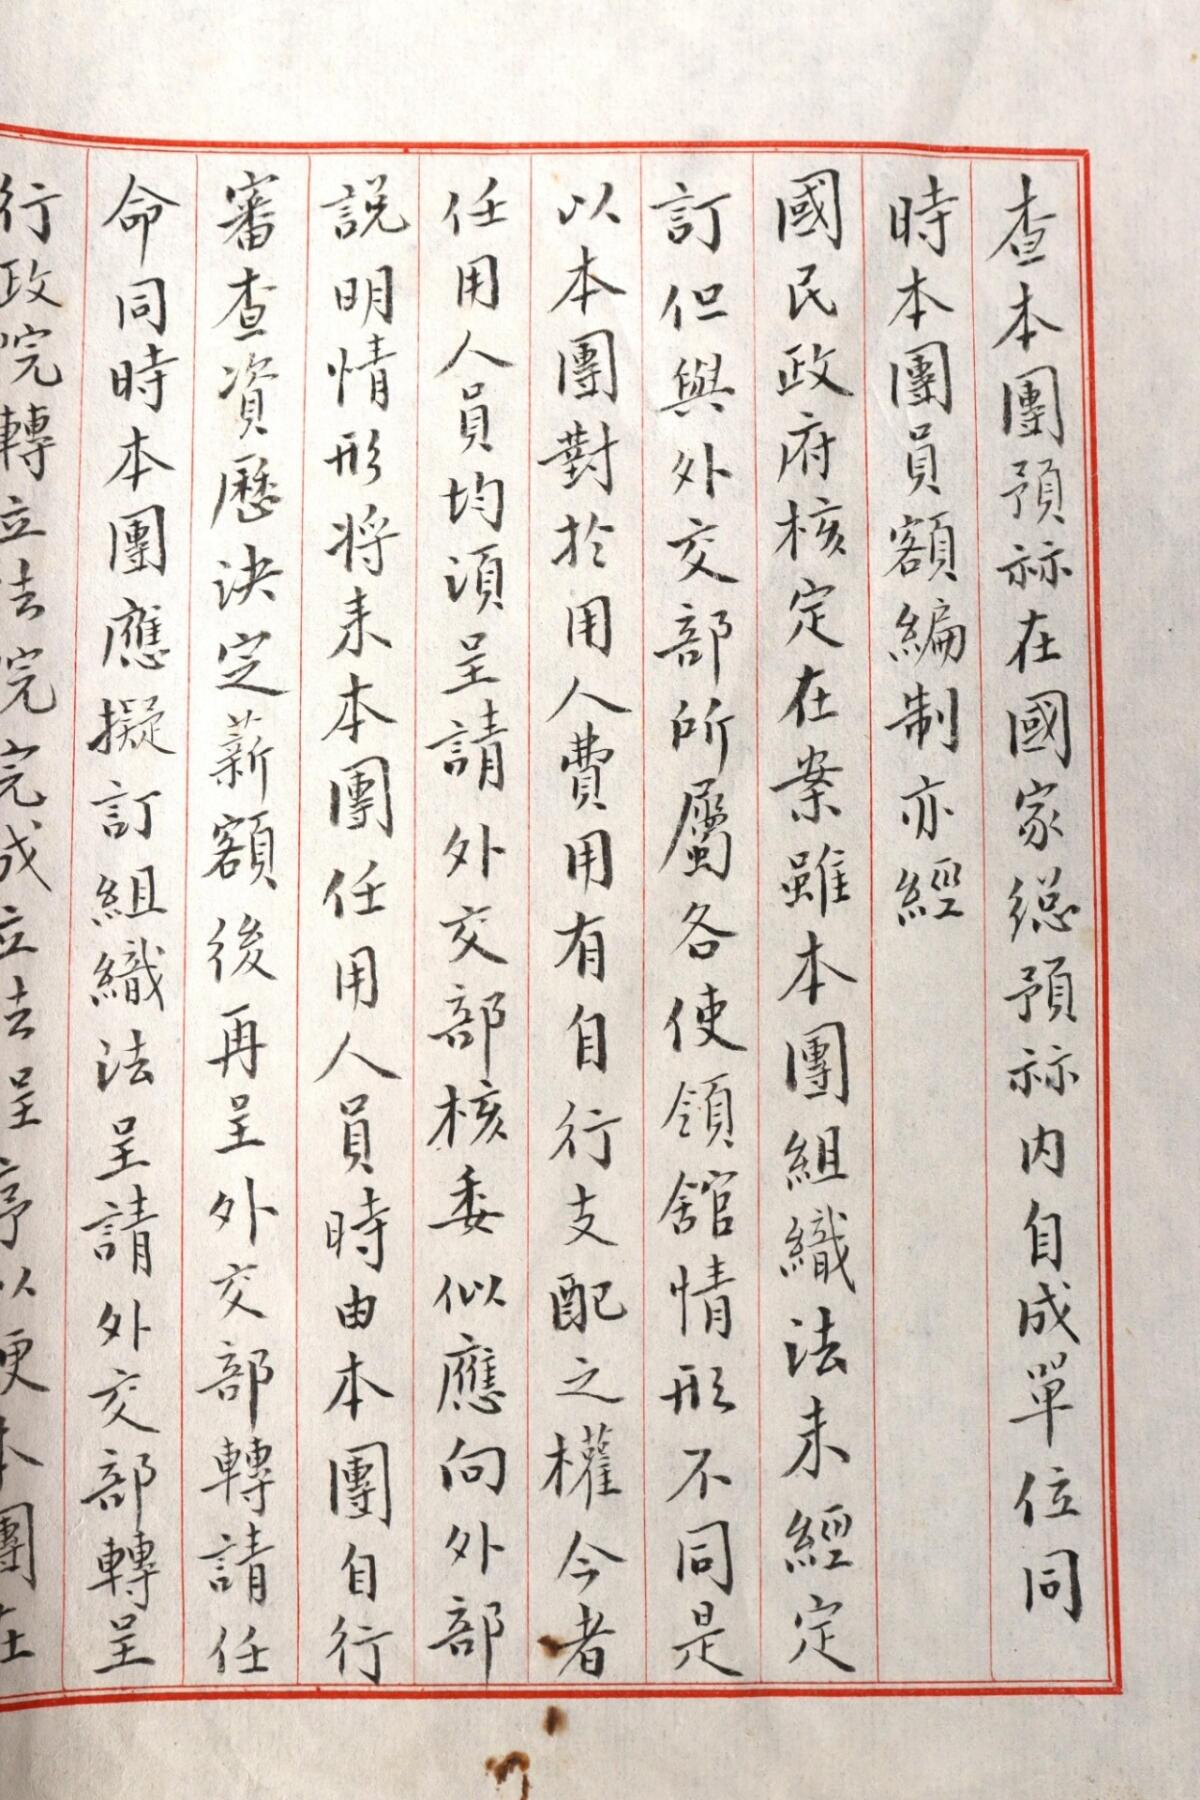 查本團預祘在國家総預祘内自成單位同
時本團員額編制亦經
國民政府核定在案雖本團組織法未經定
訂但與外交部所屬各使領舘情形不同是
以本團對於用人費用有自行支配之權今者
任用人員均須呈請外交部核委似應向外部
説明情形将来本團任用人員時由本團自行
審查資歷决定薪額後再呈外交部轉請任
命同時本團應擬訂組織法呈請外交部轉呈
行政院轉立法院完成立法程序以便本團在